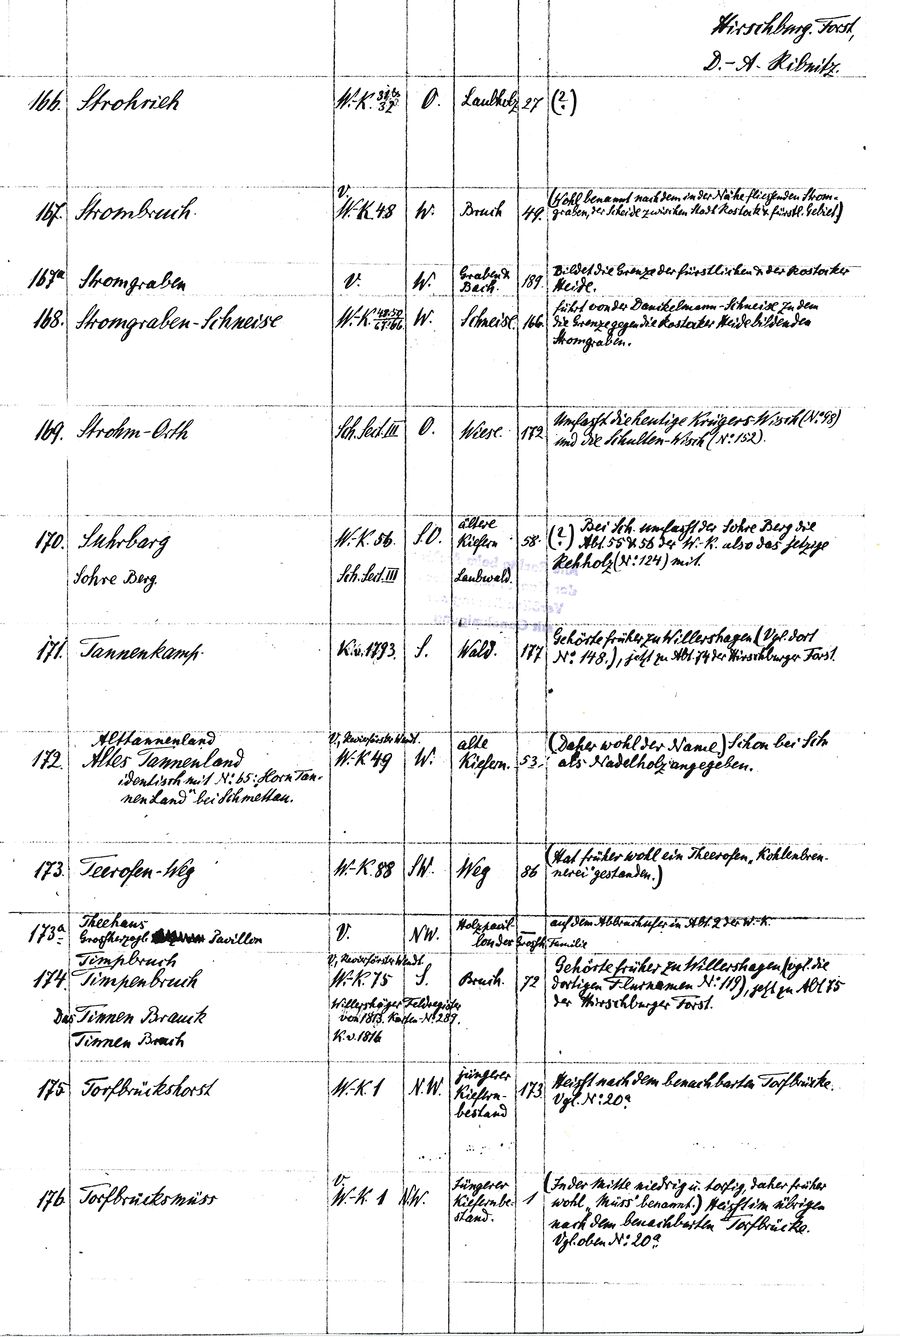 Hirschburg. Forst,
D.-A. Ribnitz.
166. Strohrieh W.-K. 31 u. 32 O. Laubholz 27 (?)
167. Strombruch. V. W.-K. 48 W. Bruch 49. (Wohl benannt nach dem in der Nähe fließenden Strom-
graben, der Scheide zwischen Stadt Rostock u. fürstl. Gebiet.)
167a Stromgraben V. W. Graben & Bach. 189. Bildet die Grenze der fürstlichen & der Rostocker
Heide.
168. Stromgraben-Schneise W.-K. 48.50 67.66 W. Schneise. 166. führt von der Danckelmann-Schneise zu dem
die Grenze gegen die Rostocker Heide bildenden
Stromgraben.
169. Strohm-Orth Sch. Sect. III O. Wiese. 172. Umfaßt die heutige Krügers-Wisch (No. 98)
und die Schulten-Wisch (No. 152).
170. Suhrbarg W.-K. 56. SO. ältere Kiefern 58. (?) Bei Sch. umfaßt der Sohre Berg die
Abt. 55 & 56 der W.-K. also das jetzige
Rehholz (No. 124) mit.
Sohre Berg. Sch. Sect. III Laubwald.
171. Tannenkamp. K. v. 1793. S. Wald. 177 Gehörte früher zu Willershagen (Vgl. dort
No. 148.), jetzt zu Abt. 74 der Hirschburger Forst.
Alttannenland V., Revierförster Wendt.
172. Altes Tannenland W.-K. 49 W. alte Kiefern. 53. (Daher wohl der Name.) Schon bei Sch.
als Nadelholz angegeben.
identisch mit No. 65: „Horn Tan-
nen Land" bei Schmettau.
173. Teerofen-Weg W.-K. 88 SW. Weg 86 (Hat früher wohl ein Theerofen, „Kohlenbren-
nerei" gestanden.)
173a. Theehaus
Großherzogl. Pavillon V. NW. Holzpavil-
lon der Großh. Familie auf dem Abbruchufer in Abt. 2 der W.-K.
Timpbruch V., Revierförster Wendt.
174. Timpenbruch W.-K. 75 S. Bruch. 72 Gehörte früher zu Willershagen (vgl. die
dortigen Flurnamen No. 119), jetzt zu Abt. 75
der Hirschburger Forst.
Das Tinnen Brauck Willershäger Feldregister
von 1813. Karten-No. 289.
Tinnen Bruch K. v. 1816
175. Torfbrückshorst W.-K. 1 N.W. jüngerer
Kiefern-
bestand 173. Heißt nach dem benachbarten Torfbrücke.
Vgl. No. 20a.
176. Torfbrücksmüss V. W.-K. 1 N.W. Jüngerer
Kiefernbe-
stand. 1 (In der Mitte niedrig u. torfig, daher früher
wohl „Müss" benannt.) Heißt im übrigen
nach dem benachbarten Torfbrücke.
Vgl. oben No. 20a.